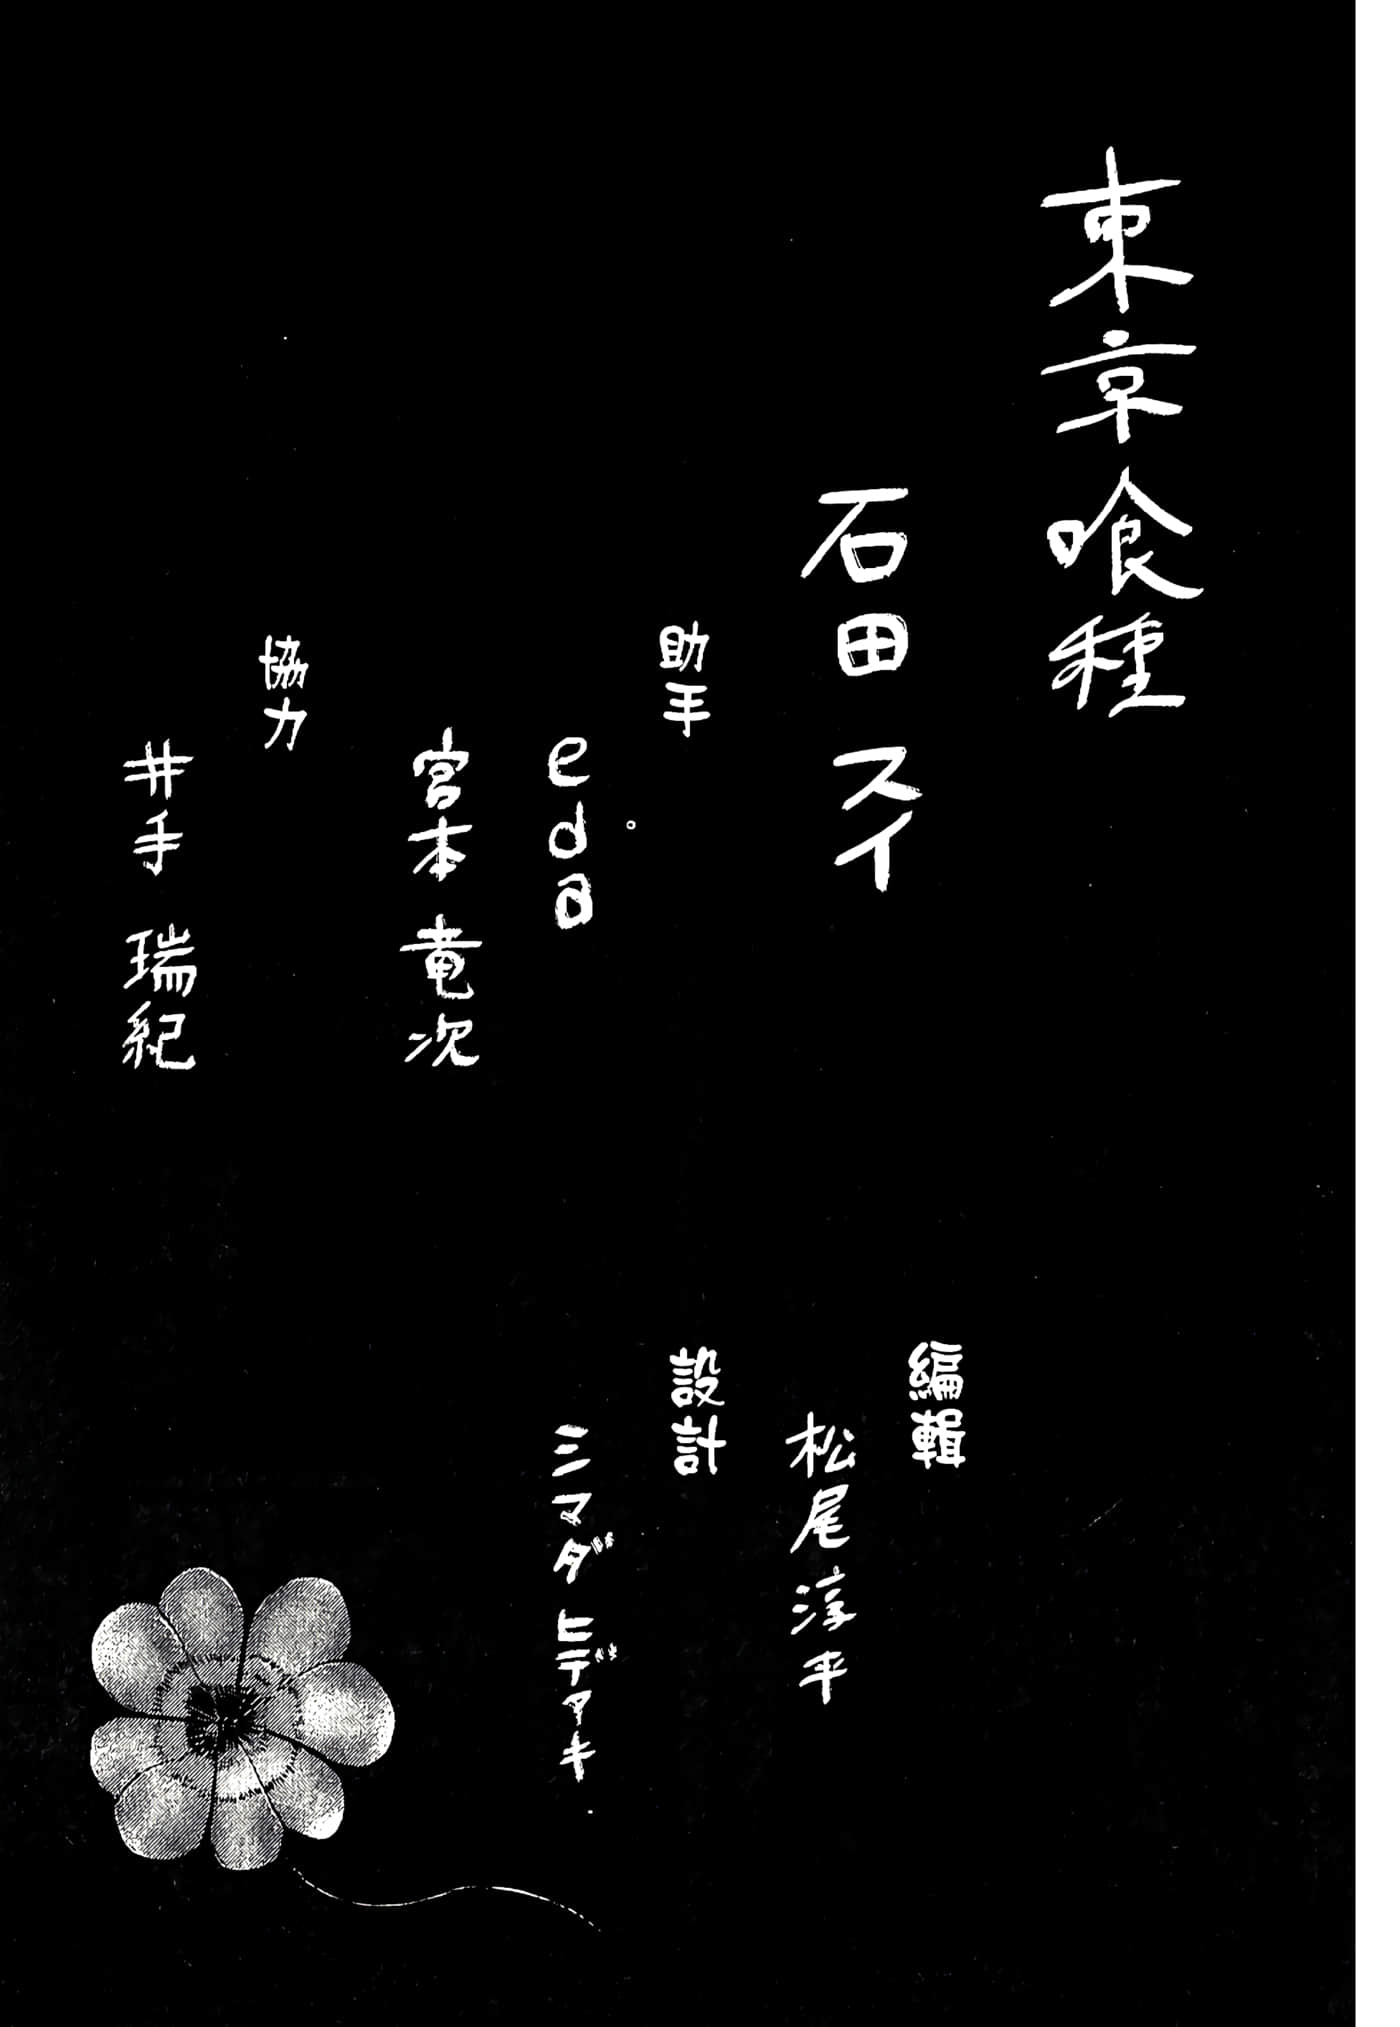 東京喰種
石田スイ
助手
eda
宮本 竜次
協力
井手 瑞紀
編輯
松尾淳平
設計
シマダ ヒデアキ